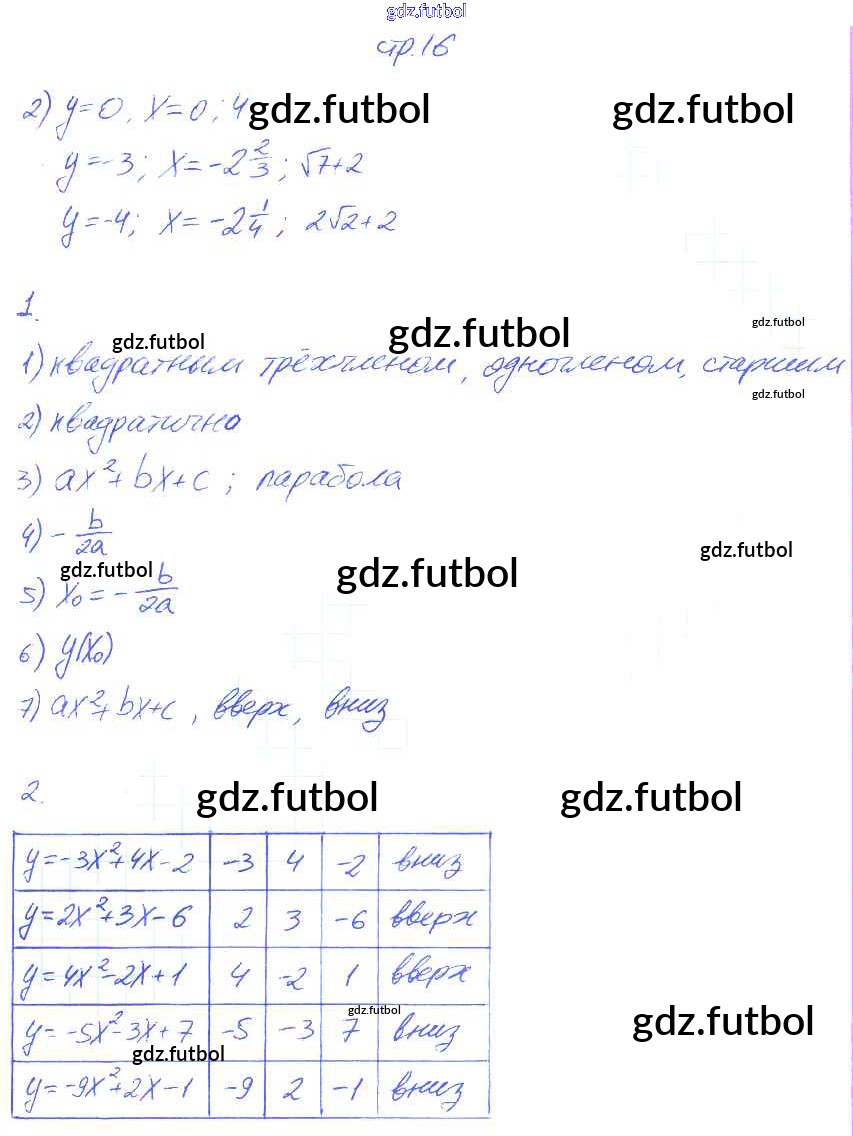 gdz.futbol
стр.16
2) y=0, x=0; 4 gdz.futbol gdz.futbol
y=-3; x=-2 2/3; √7+2
y=-4; x=-2 1/4; 2√2+2
1.
gdz.futbol gdz.futbol gdz.futbol
1) квадратным трёхчленом, одночленом, старшим
gdz.futbol
2) квадратично
3) ax²+bx+c; парабола
4) -b/2a
gdz.futbol gdz.futbol gdz.futbol
5) x₀=-b/2a
6) y(x₀)
7) ax²+bx+c, вверх, вниз
2. gdz.futbol gdz.futbol
y=-3x²+4x-2 -3 4 -2 вниз
y=2x²+3x-6 2 3 -6 вверх
y=4x²-2x+1 4 -2 1 вверх
gdz.futbol gdz.futbol
y=-5x²-3x+7 -5 -3 7 вниз
gdz.futbol
y=-9x²+2x-1 -9 2 -1 вниз